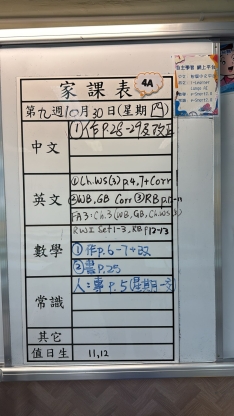 家課表 4A
第九週10月30日(星期四)
中文
①作P.28-29及改正
英文
①Ch.WS(3)p.4,7+Corr
②WB,GB Corr ③RB p.
FA3:Ch.3(WB,GB,Ch.WS3)
RWI Set1-3, RB p12-13
數學
①作p.6-7+改
②書P.25
常識
人:專P.5(星期一交)
其它
值日生 11,12
自主學習 網上平台